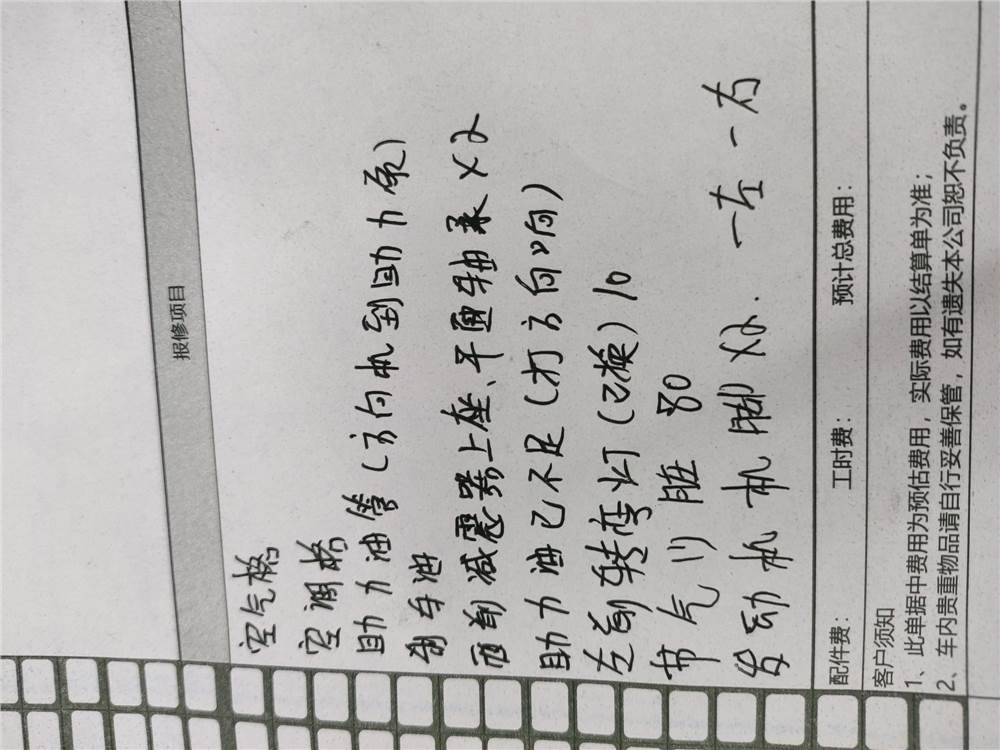 报修项目
空气格
空调格
助力油管(方向机到助力泵)
刹车油
两前减震器上座、平面轴承×2
助力油已不足(打方向响)
左前转弯灯(已换)10
节气门脏 80
发动机机脚×2. 一左一右
配件费: 工时费: 预计总费用:
客户须知
1、此单据中费用为预估费用,实际费用以结算单为准;
2、车内贵重物品请自行妥善保管,如有遗失本公司恕不负责。